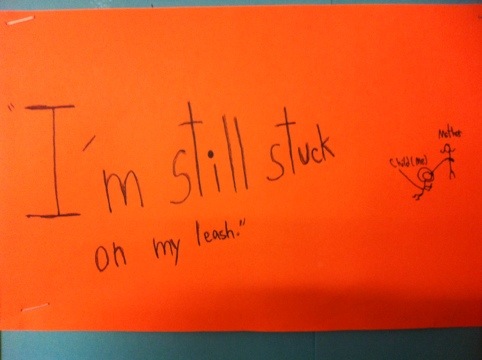 "I'm still stuck
on my leash."
Child (me)
Mother